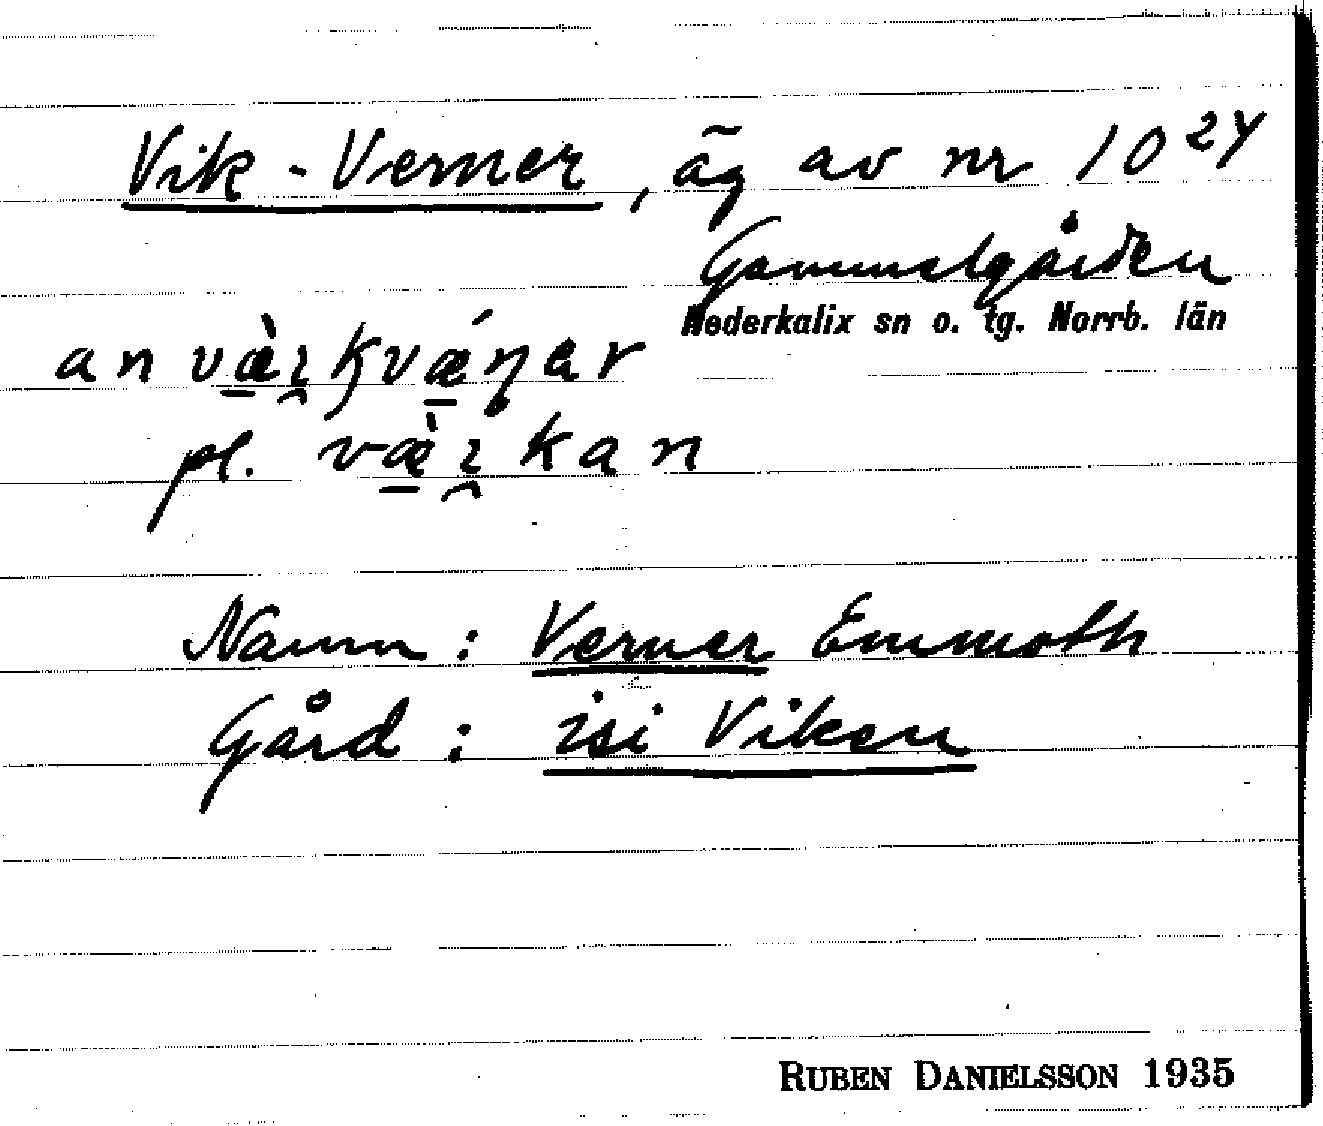 Vik-Verner, äg av nr 10²⁴
Gammelgården
Nederkalix sn o. tg. Norrb. län
an væ̀ɩkvǽŋar
pl. væ̀ɩkan
Namn: Verner Emmoth
Gård: isi Viken
RUBEN DANIELSSON 1935